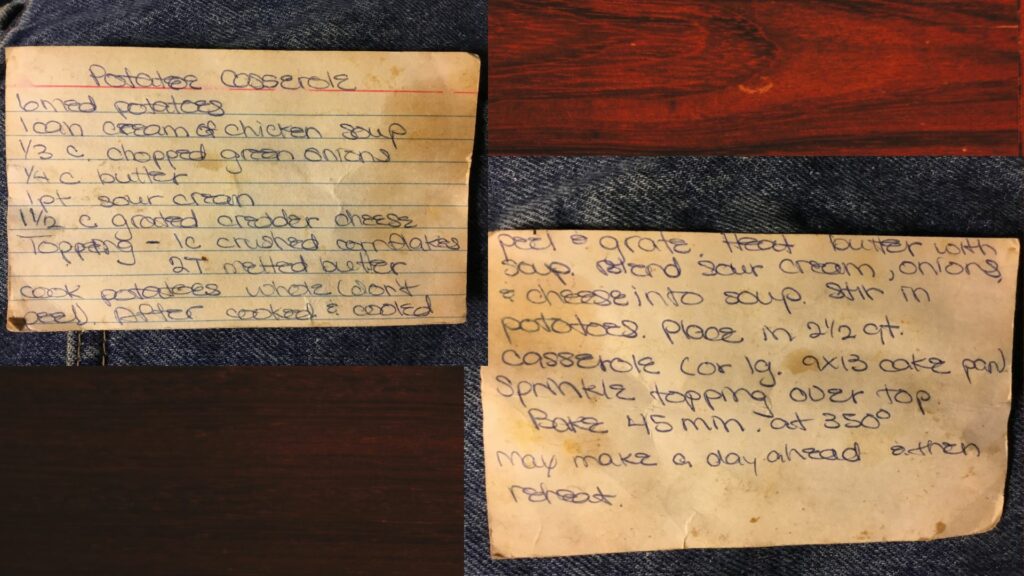 Potatoe Casserole
6 med potatoes
1 can cream of chicken soup
1/3 c. chopped green onions
1/4 c butter
1 pt sour cream
1 1/2 c grated chedder cheese
Topping - 1c crushed cornflakes
2T melted butter
cook potatoes whole (don't
peel After cooked & cooled
peel & grate Heat butter with
soup. Blend sour cream, onions,
& cheese into soup. Stir in
potatoes. Place in 2 1/2 qt.
casserole (or lg. 9x13 cake pan)
Sprinkle topping over top
Bake 45 min. at 350°
may make a day ahead & then
reheat.